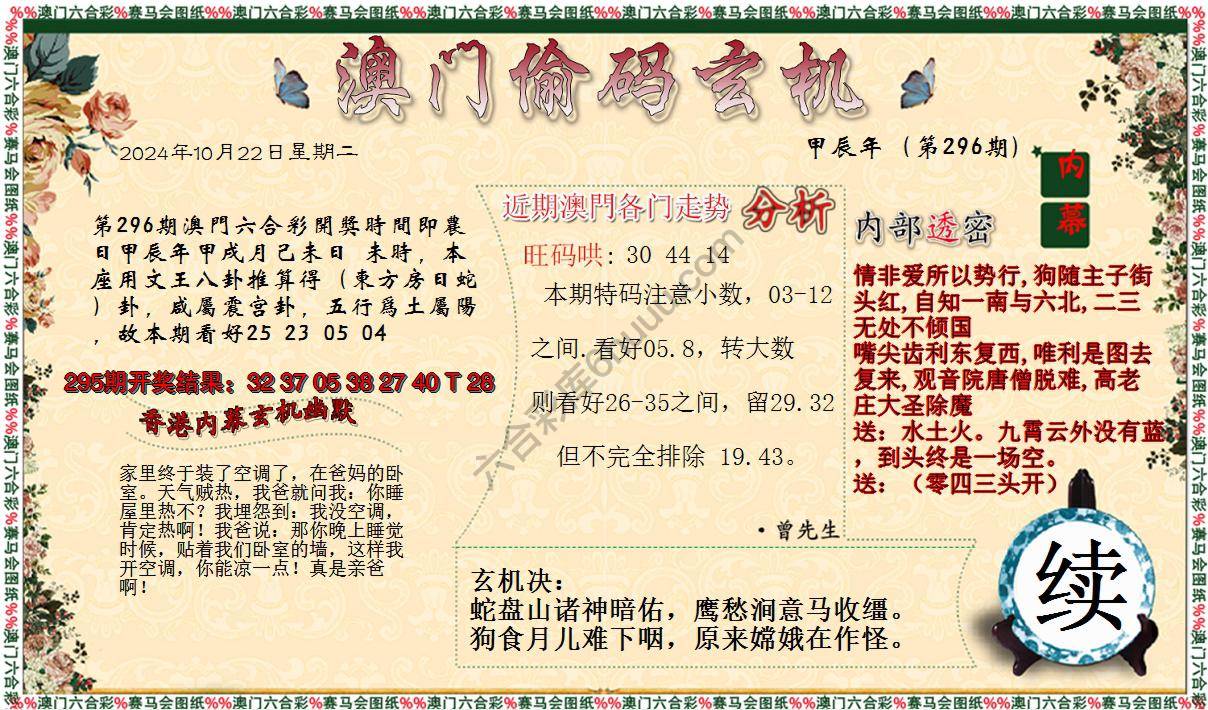 %%澳门六合彩%赛马会图纸%%澳门六合彩%赛马会图纸%%澳门六合彩%赛马会图纸%%澳门六合彩%赛马会图纸%%澳门六合彩%赛马会图纸%%澳门六合彩%赛马会图纸%%
澳门偷码玄机
2024年10月22日星期二
甲辰年（第296期）
内
幕
第296期澳門六合彩開獎時間即農
日甲辰年甲戌月己未日 未時，本
座用文王八卦推算得（東方房日蛇
）卦，咸屬震宫卦，五行爲土屬陽
，故本期看好25 23 05 04
295期开奖结果：32 37 05 38 27 40 T 28
香港内幕玄机幽默
家里终于装了空调了，在爸妈的卧
室。天气贼热，我爸就问我：你睡
屋里热不？我埋怨到：我没空调，
肯定热啊！我爸说：那你晚上睡觉
时候，贴着我们卧室的墙，这样我
开空调，你能凉一点！真是亲爸
啊！
近期澳門各门走势 分析
旺码哄：30 44 14
本期特码注意小数，03-12
之间.看好05.8，转大数
则看好26-35之间，留29.32
但不完全排除 19.43。
·曾先生
内部透密
情非爱所以势行,狗随主子街
头红,自知一南与六北,二三
无处不倾国
嘴尖齿利东复西,唯利是图去
复来,观音院唐僧脱难,高老
庄大圣除魔
送：水土火。九霄云外没有蓝
，到头终是一场空。
送：（零四三头开）
玄机决：
蛇盘山诸神暗佑，鹰愁涧意马收缰。
狗食月儿难下咽，原来嫦娥在作怪。
续